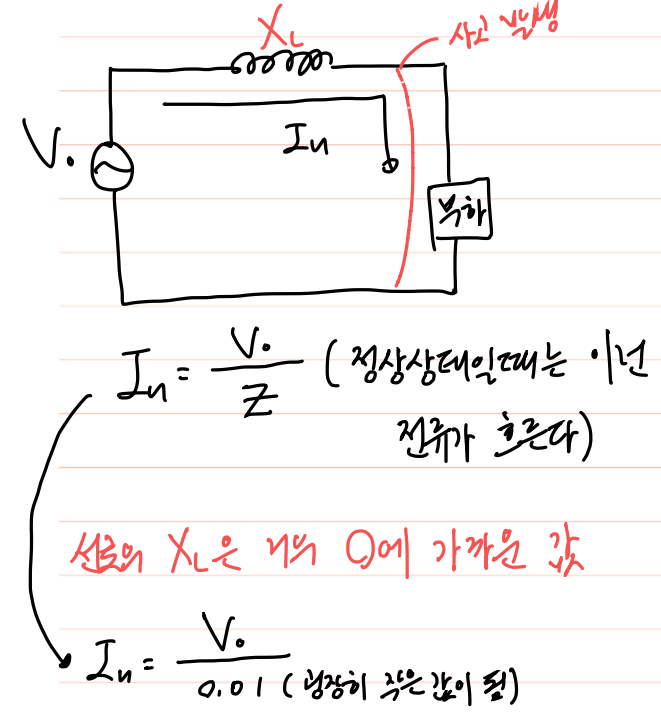 X_L
사고 발생
V.
In
부하
In = V. / Z (정상상태일때는 이런
전류가 흐른다)
선로의 X_L은 거의 0에 가까운 값
In = V. / 0.01 (굉장히 작은 값이 됨)